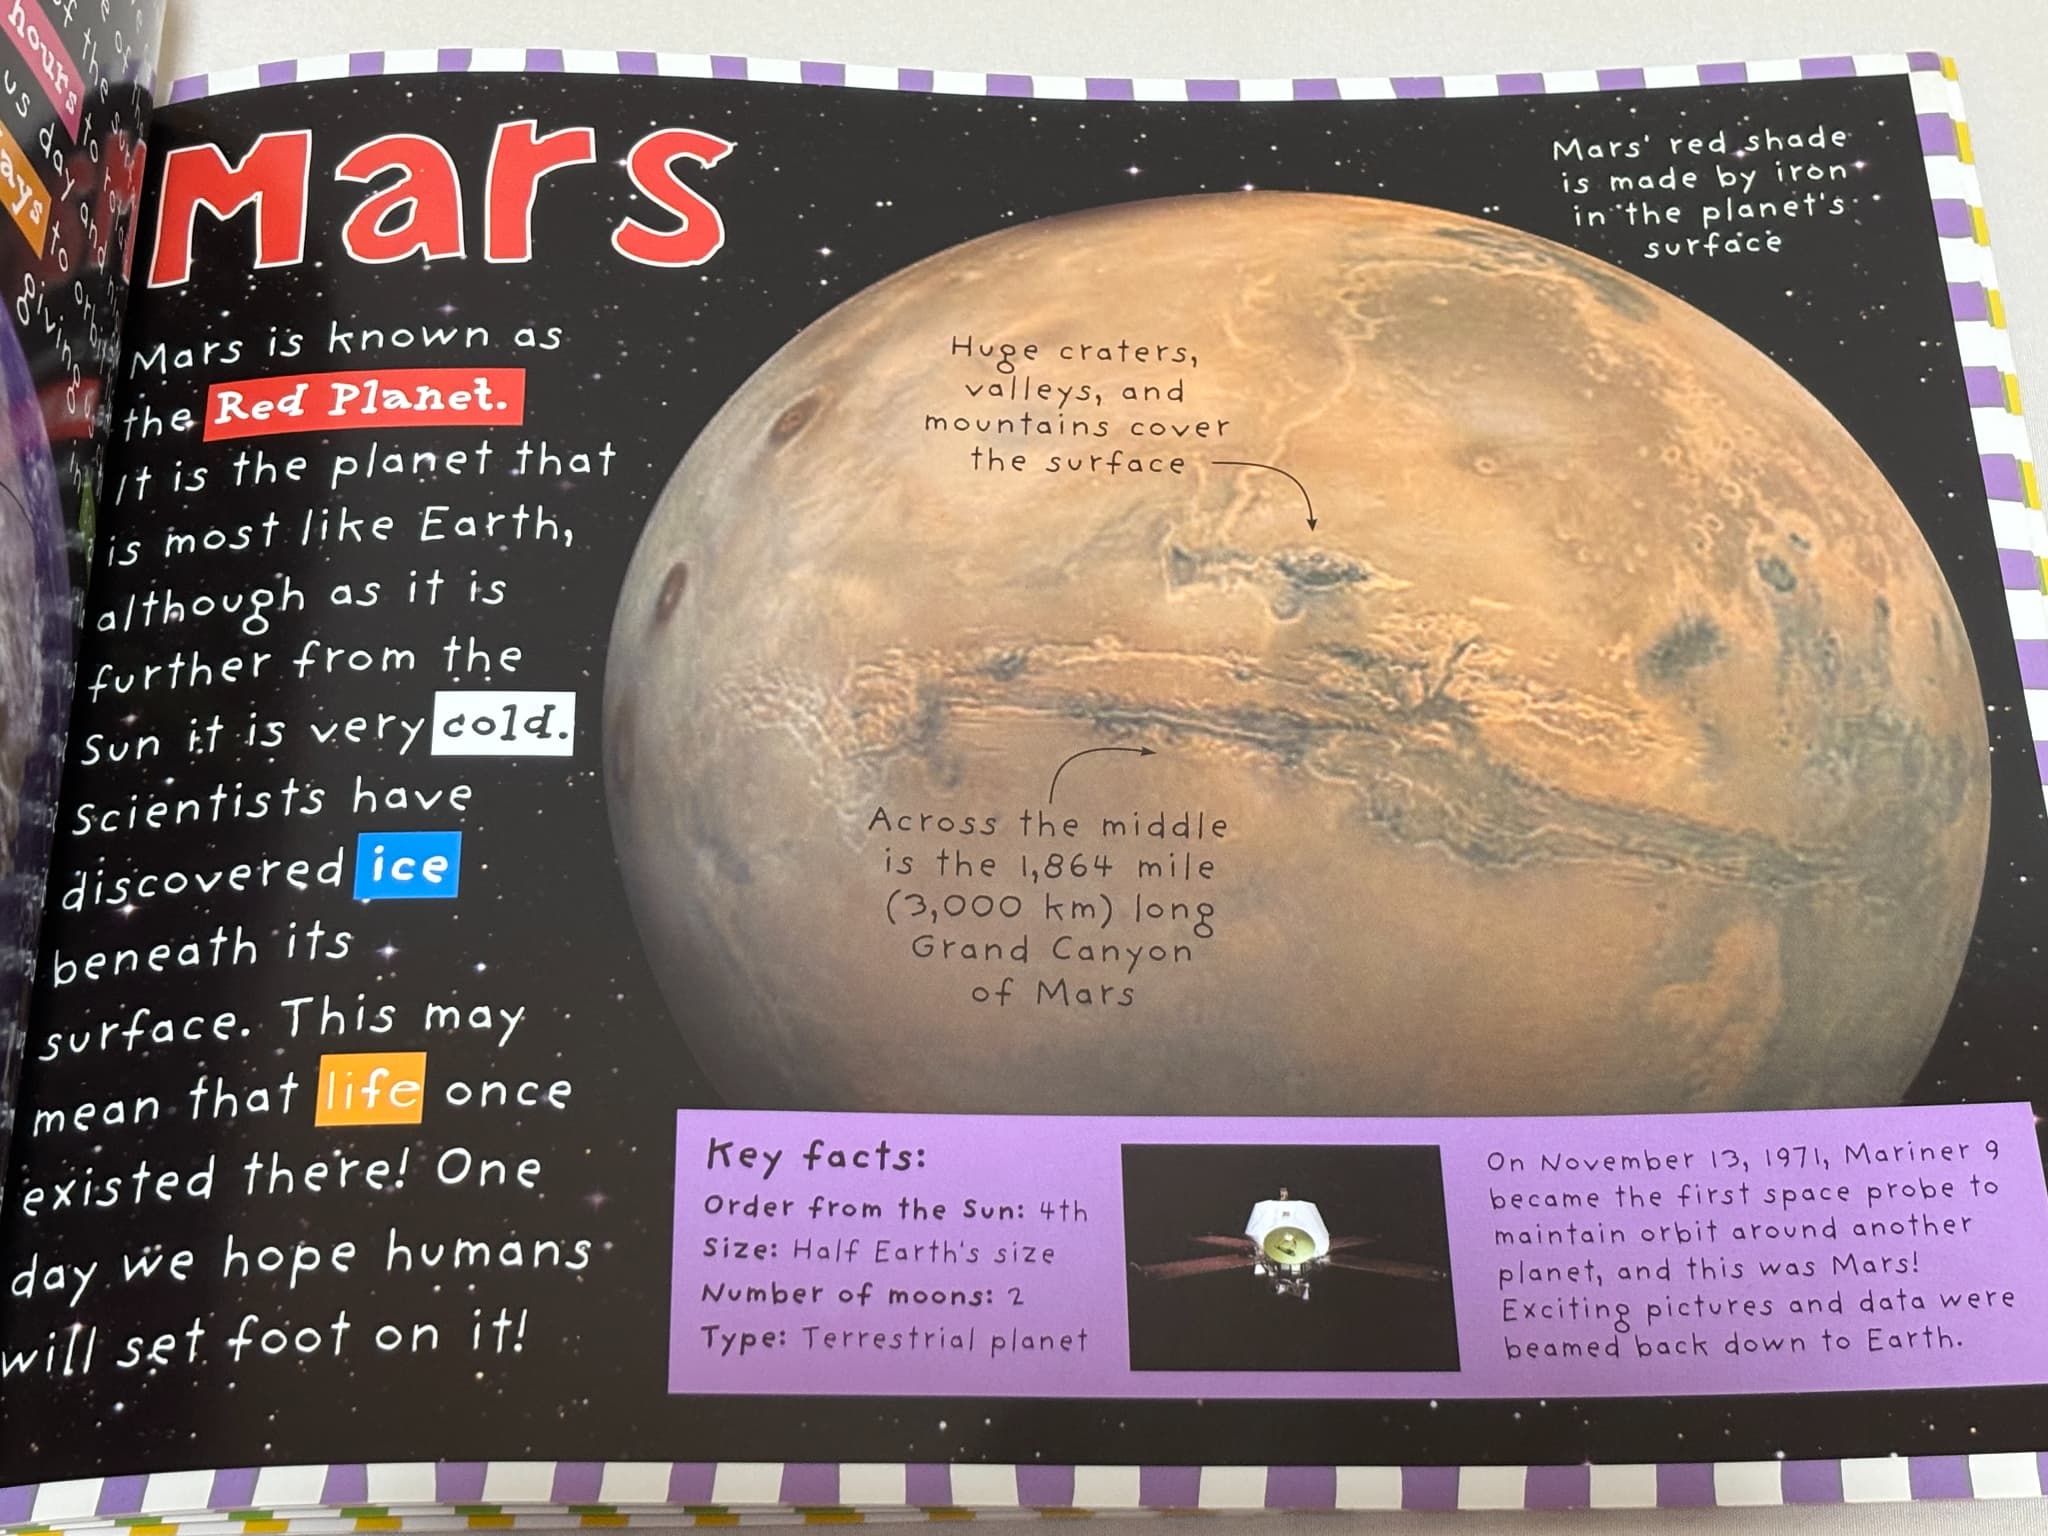 hours
ays
Mars
Mars is known as
the Red Planet.
It is the planet that
is most like Earth,
although as it is
further from the
Sun it is very cold.
Scientists have
discovered ice
beneath its
surface. This may
mean that life once
existed there! One
day we hope humans
will set foot on it!
Mars' red shade
is made by iron
in the planet's
surface
Huge craters,
valleys, and
mountains cover
the surface
Across the middle
is the 1,864 mile
(3,000 km) long
Grand Canyon
of Mars
Key facts:
Order from the Sun: 4th
Size: Half Earth's size
Number of moons: 2
Type: Terrestrial planet
On November 13, 1971, Mariner 9
became the first space probe to
maintain orbit around another
planet, and this was Mars!
Exciting pictures and data were
beamed back down to Earth.